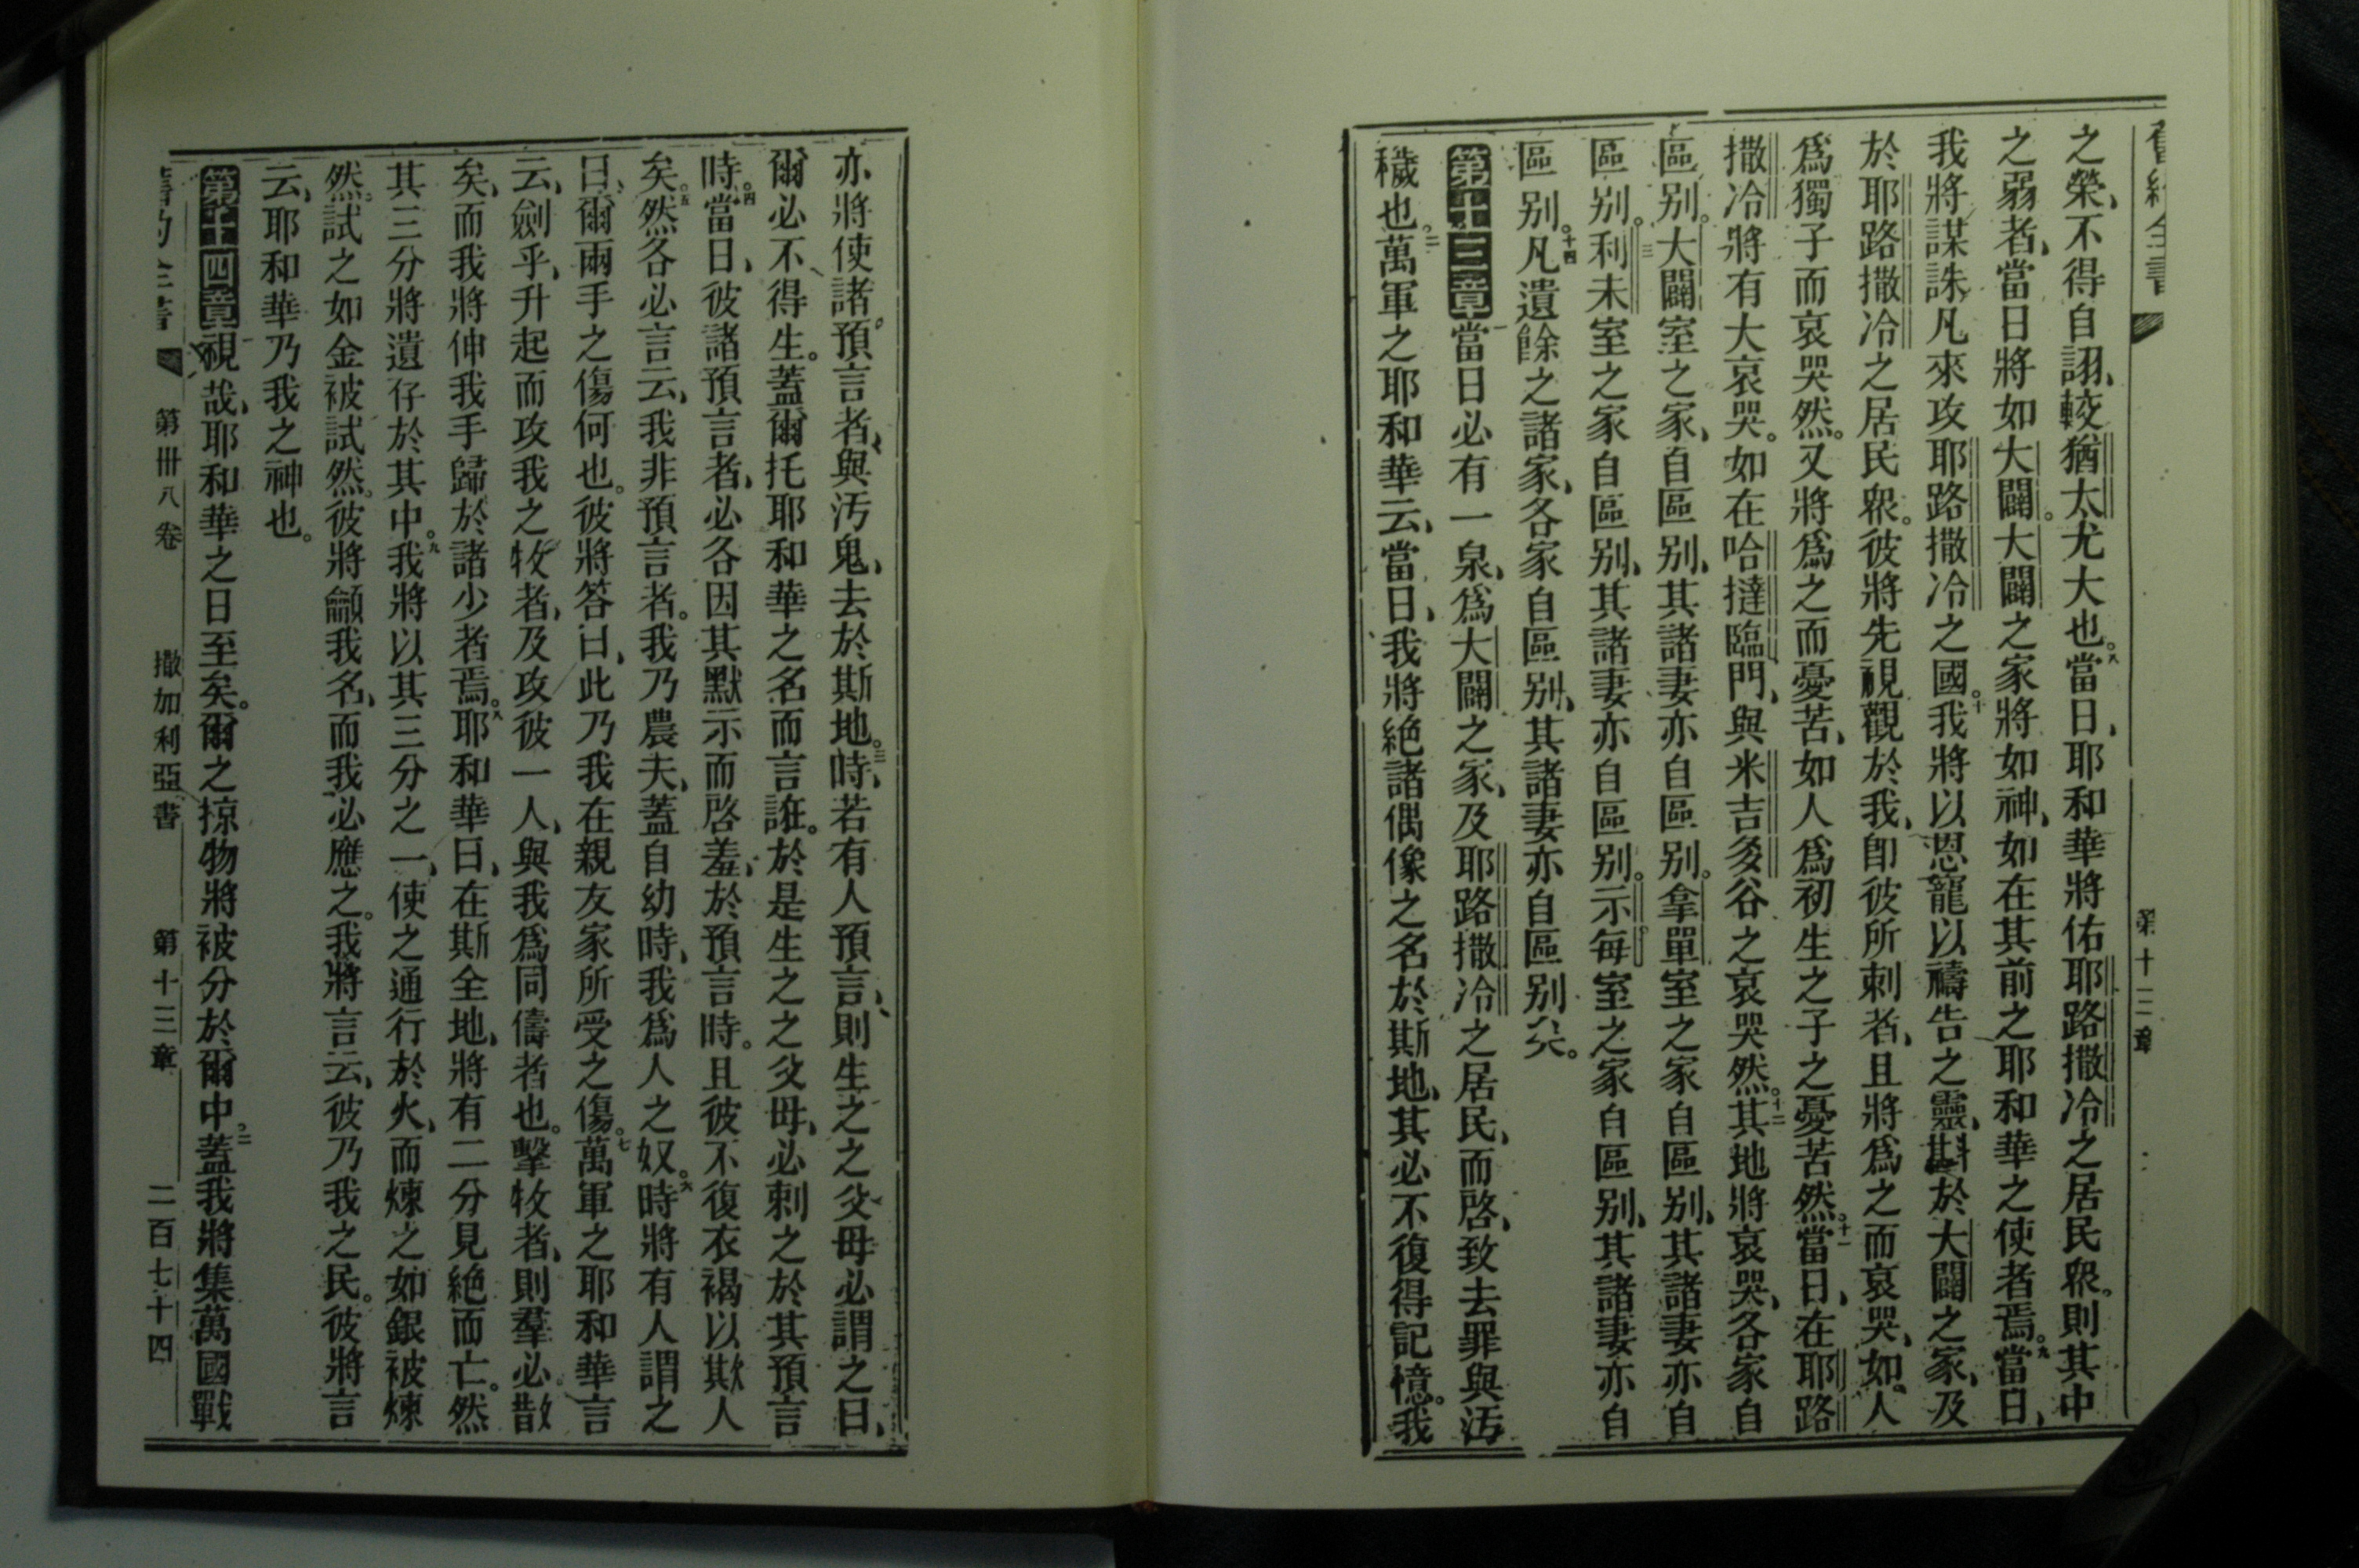 舊約全書 第十三章
之榮、不得自詡、較猶太尤大也。八當日、耶和華將佑耶路撒冷之居民衆。則其中
之弱者、當日將如大闢。大闢之家將如神、如在其前之耶和華之使者焉。九當日、
我將謀誅凡來攻耶路撒冷之國。十我將以恩寵以禱告之靈、斟於大闢之家、及
於耶路撒冷之居民衆。彼將先視觀於我、卽彼所刺者、且將爲之而哀哭、如人
爲獨子而哀哭然。又將爲之而憂苦、如人爲初生之子之憂苦然。十一當日、在耶路
撒冷將有大哀哭。如在哈撻臨門、與米吉多谷之哀哭然。十二其地將哀哭、各家自
區別。大闢室之家、自區別、其諸妻亦自區別。拿單室之家自區別、其諸妻亦自
區別。十三利未室之家自區別、其諸妻亦自區別。示每室之家自區別、其諸妻亦自
區別。十四凡遺餘之諸家、各家自區別、其諸妻亦自區別矣。
第十三章 當日必有一泉、爲大闢之家、及耶路撒冷之居民、而啓、致去罪與汚
穢也。二萬軍之耶和華云、當日、我將絕諸偶像之名於斯地、其必不復得記憶。我
亦將使諸預言者、與汚鬼、去於斯地。三時、若有人預言、則生之之父母必謂之曰、
爾必不得生。蓋爾托耶和華之名而言誑。於是生之之父母、必刺之於其預言
時。四當日、彼諸預言者、必各因其默示而啓羞、於預言時。且彼不復衣褐以欺人
矣。五然各必言云、我非預言者。我乃農夫、蓋自幼時、我爲人之奴。六時將有人謂之
曰、爾兩手之傷何也。彼將答曰、此乃我在親友家所受之傷。七萬軍之耶和華言
云、劍乎、升起而攻我之牧者、及攻彼一人、與我爲同儔者也。擊牧者、則羣必散
矣、而我將伸我手歸於諸少者焉。八耶和華曰、在斯全地、將有二分見絕而亡。然
其三分將遺存於其中。九我將以其三分之一、使之通行於火、而煉之如銀被煉
然。試之如金被試然。彼將籲我名、而我必應之。我將言云、彼乃我之民。彼將言
云、耶和華乃我之神也。
第十四章 視哉、耶和華之日至矣。爾之掠物將被分於爾中。二蓋我將集萬國戰
舊約全書 第卅八卷 撒加利亞書 第十三章 二百七十四